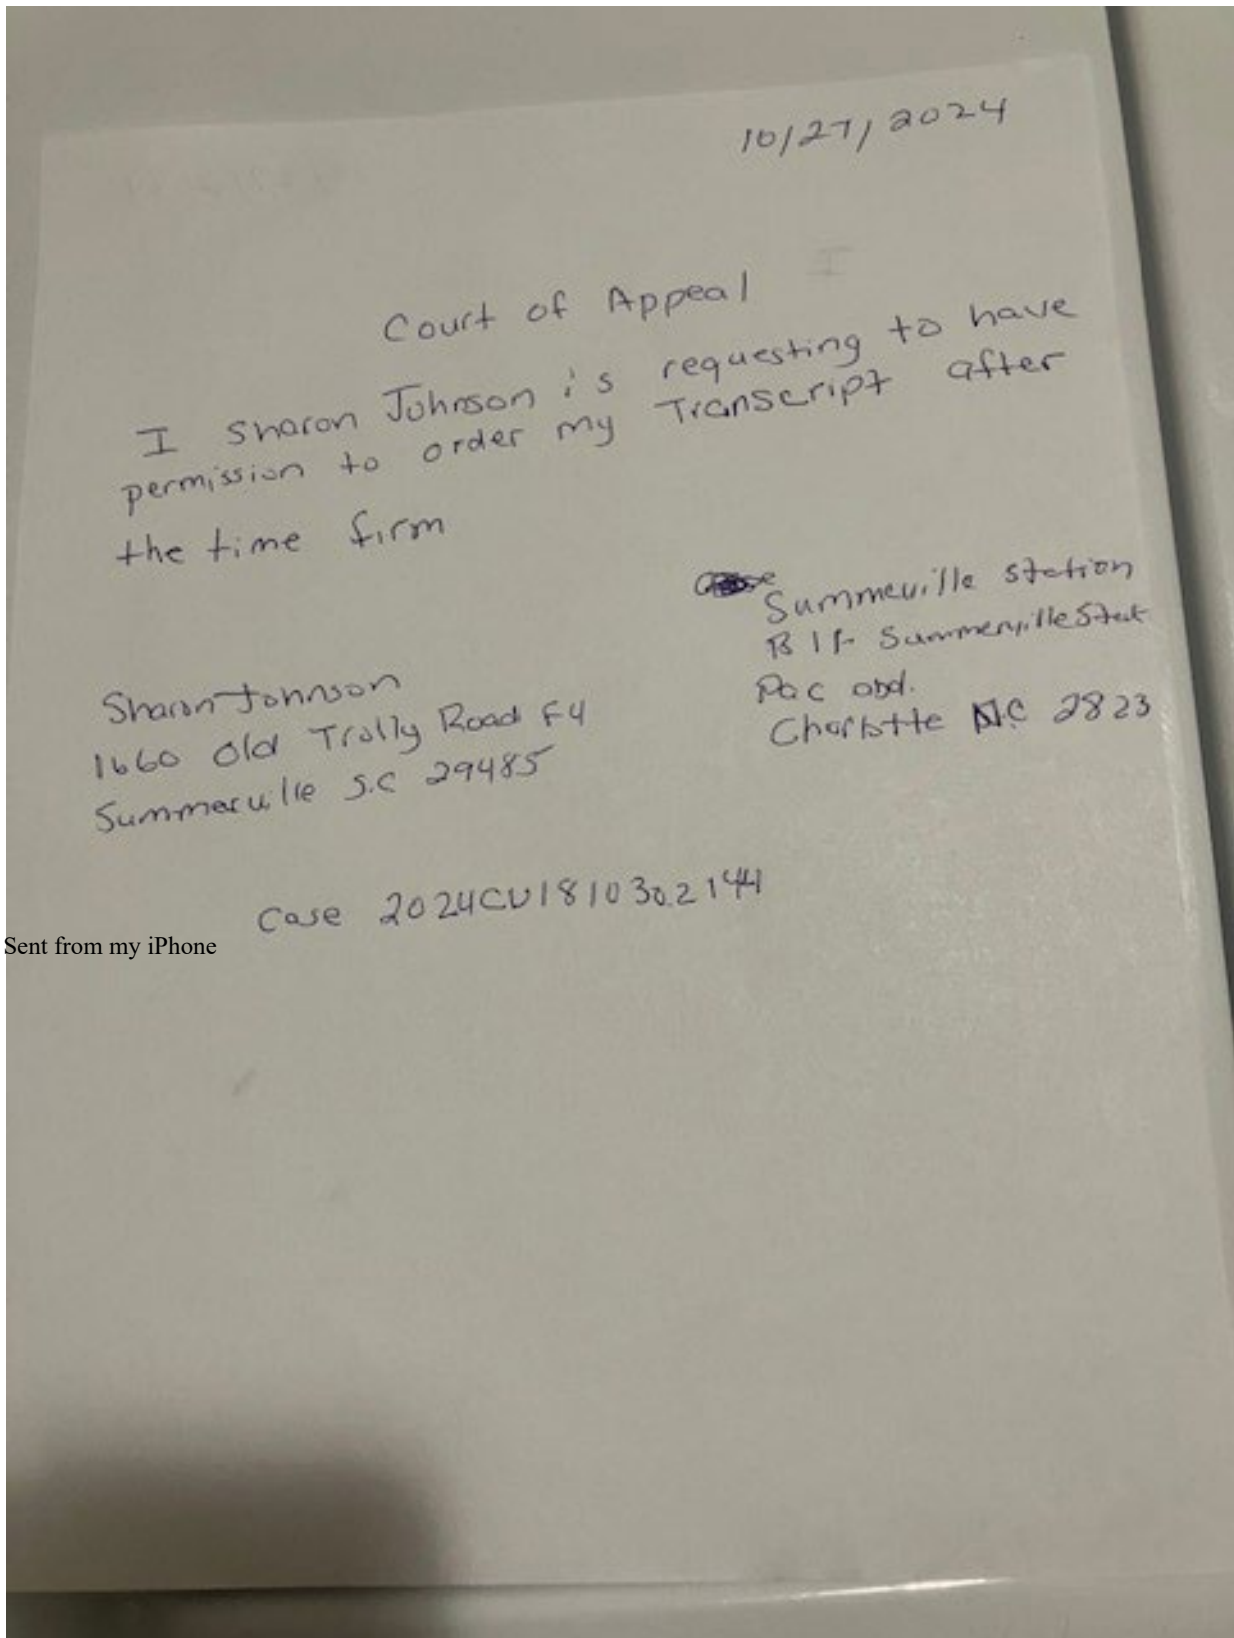 10/27/2024
Court of Appeal
I Sharon Johnson is requesting to have
permission to order my Transcript after
the time firm
Summeville station
Summerville
Sharon Johnson
1660 Old Trolly Road F4
Summerville S.C 29485
Charlotte N.C 2823
Case 2024CU1810302144
Sent from my iPhone